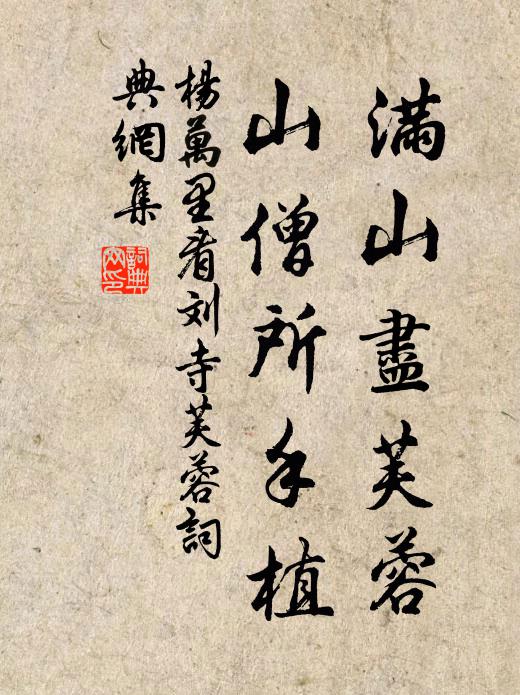 滿山盡芙蓉
山僧所手植
楊萬里看刘寺芙蓉詞
典網集
詞典